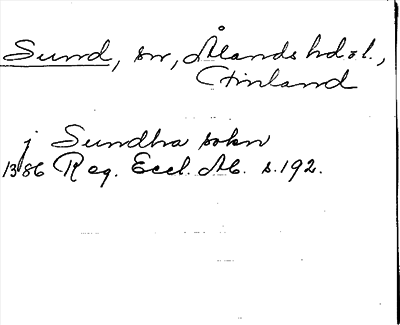 Sund, sn, Ålands hd o l.,
Finland
j Sundha sokn
1386 Reg. Eccl. Ab. s. 192.